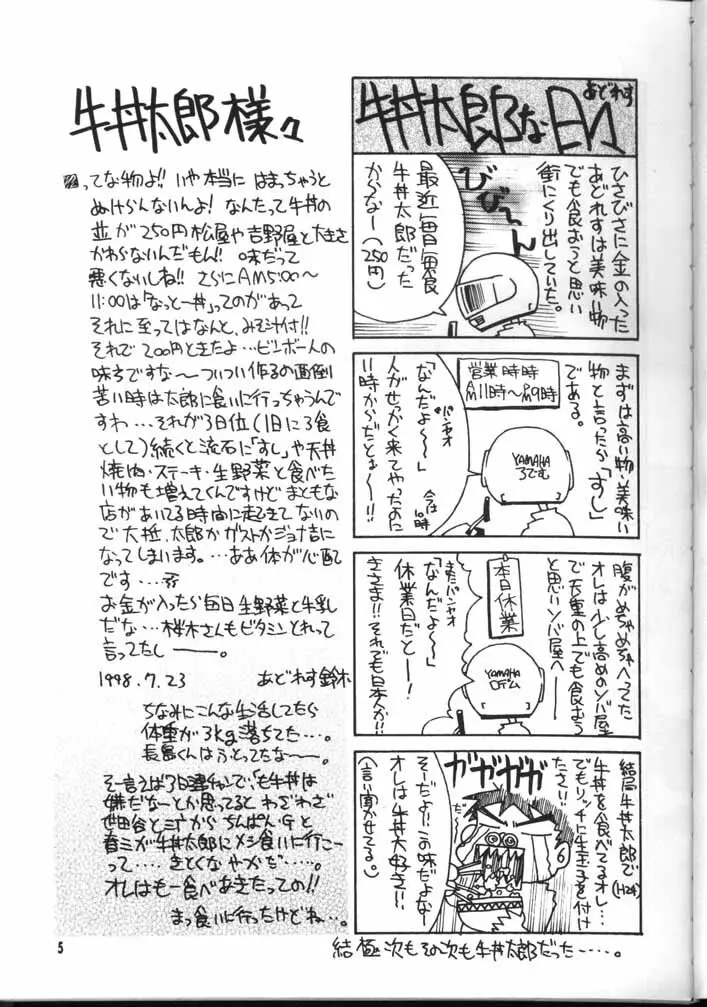 牛丼太郎な日々
あどれす
ひさびさに金の入った
あどれすは美味い物
でも食おうと思い
街にくり出していた。
びびーん
最近毎日毎食
牛丼太郎だった
からなー(250円)
まずは高い物・美味い
物と言ったら「すし」
である。
営業時時
AM11時〜PM9時
YAMAHA
ろでむ
パンヤオ
「なんだよ〜〜」
人がせっかく来てやったのに
11時からだとぉ〜!!
今は10時
腹がめちゃめちゃへってた
オレは少し高めのソバ屋
で天重の上でも食おう
と思いソバ屋へ——
本日休業
YAMAHA
ロデム
またパンヤオ
「なんだよ〜〜」
休業日だとー!
きさま!!それでも日本人か!!
結局牛丼太郎で
牛丼を食べてるオレ…(H24)
でもリッチに生玉子を付け
たさ!!
ガガガガ
そーだよ!!この味だよな〜
オレは牛丼大好き!!
(言い聞かせてる。)
結極次もその次も牛丼太郎だった……。
牛丼太郎様々
ってな物よ!! いや本当に はまっちゃうと
ぬけらんないんよ! なんたって牛丼の
並が250円 松屋や吉野屋と大きさ
かわらないんだもん!! 味だって
悪くないしね!! さらにAM5:00〜
11:00は「なっとー丼」ってのがあって
それに至ってはなんと、みそ汁付!!
それで200円ときたよ…ビンボー人の
味方ですな〜 ついつい作るの面倒
苦い時は太郎に食いに行っちゃうんで
すわ…それが3日位(1日に3食
として)続くと流石に「すし」や天丼
焼肉・ステーキ・生野菜と食べた
い物も増えてくんですけど まともな
店があいてる時間に起きてないの
で 大抵、太郎か ガストか ジョナ吉に
なってしまいます。…ああ体が心配
です…
お金が入ったら毎日生野菜と牛乳
だな…桜木さんもビタミンとれって
言ってたし———。
1998.7.23
あどれす鈴木
ちなみにこんな生活してたら
体重が3kg落ちてた…。
長島くんはふとってたな〜〜。
そー言うば3日連チャンで、「も牛丼は
嫌だなーとか思ってると わざわざ
世田谷と三才から ちんぱん・Gと
春ミが牛丼太郎にメシ食いに行こー
って……きとくな やからだ……。
オレはもー食べあきたっての!!
まっ食いに行ったけどね…。
5